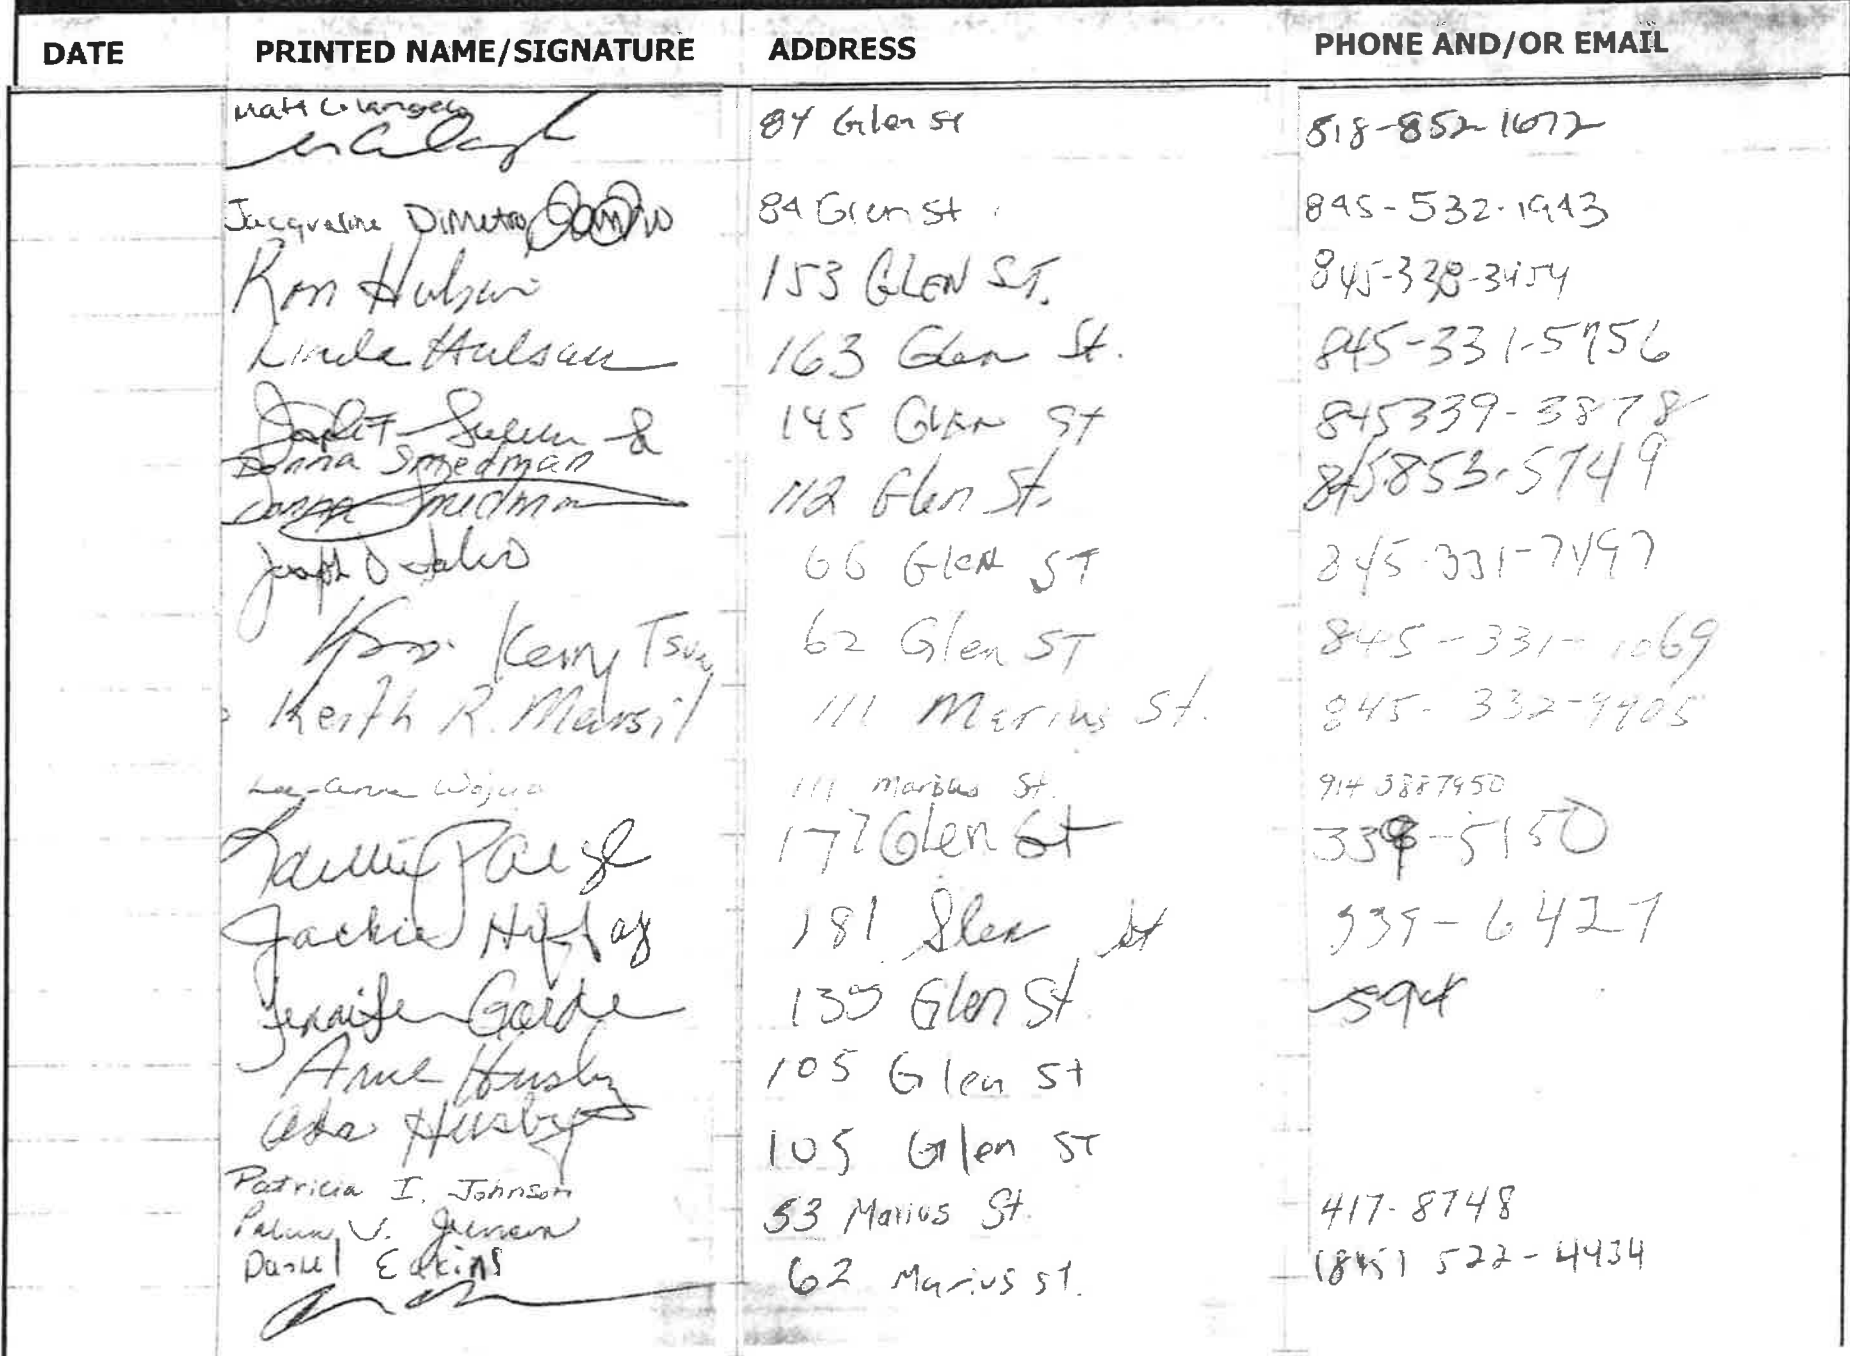 DATE PRINTED NAME/SIGNATURE ADDRESS PHONE AND/OR EMAIL
Matt Colangelo 84 Glen St 518-852-1672
Jacqueline DiMetro 84 Glen St 845-532-1943
Ron Hulsair 153 GLEN ST. 845-338-3454
Linda Hulsair 163 Glen St. 845-331-5756
145 Glen St 845 339-3878
Donna Smedman
Donna Smedman 112 Glen St. 845 853-5749
Joseph D 66 Glen ST 845-331-7497
Kerry 62 Glen ST 845-331-1069
Keith R. Marsil 111 Marius St. 845-332-9905
Lee-Anne 111 Marius St. 914 3887950
Paige 177 Glen St 339-5150
Jackie 181 Glen St 339-6427
Jennifer 135 Glen St. 594
Arne Husby 105 Glen St
Husby 105 Glen ST
Patricia I. Johnson 53 Marius St. 417-8748
Daniel Eakins 62 Marius St. (845) 522-4434